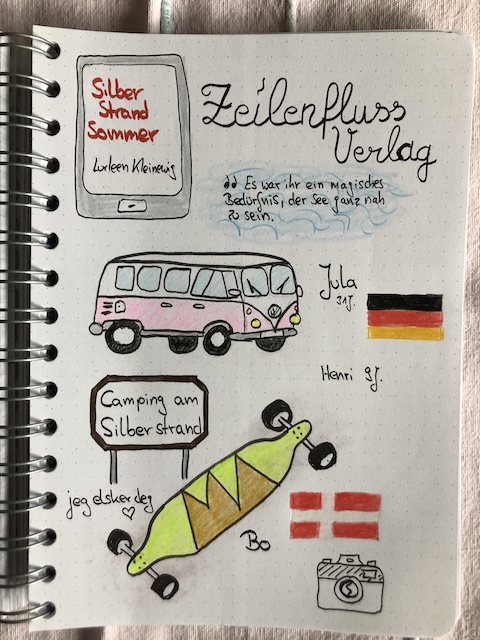 Silber
Strand
Sommer
Lorleen Kleinewig
Zeilenfluss
Verlag
„ Es war ihr ein magisches
Bedürfnis, der See ganz nah
zu sein.
Jula
31J.
Henri 9J.
Camping am
Silberstrand
jeg elsker dej
Bo